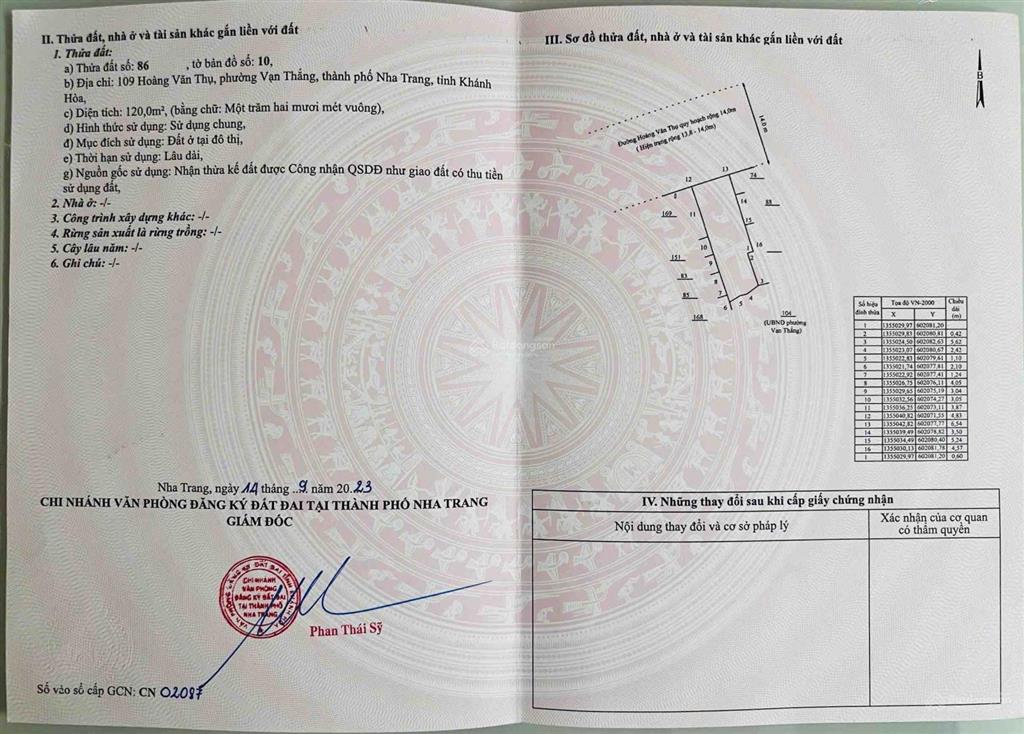 II. Thửa đất, nhà ở và tài sản khác gắn liền với đất
1. Thửa đất:
a) Thửa đất số: 86 , tờ bản đồ số: 10,
b) Địa chỉ: 109 Hoàng Văn Thụ, phường Vạn Thắng, thành phố Nha Trang, tỉnh Khánh
Hòa,
c) Diện tích: 120,0m², (bằng chữ: Một trăm hai mươi mét vuông),
d) Hình thức sử dụng: Sử dụng chung,
đ) Mục đích sử dụng: Đất ở tại đô thị,
e) Thời hạn sử dụng: Lâu dài,
g) Nguồn gốc sử dụng: Nhận thừa kế đất được Công nhận QSDĐ như giao đất có thu tiền
sử dụng đất,
2. Nhà ở: -/-
3. Công trình xây dựng khác: -/-
4. Rừng sản xuất là rừng trồng: -/-
5. Cây lâu năm: -/-
6. Ghi chú: -/-
Nha Trang, ngày 14 tháng ..9. năm 20.23
CHI NHÁNH VĂN PHÒNG ĐĂNG KÝ ĐẤT ĐAI TẠI THÀNH PHỐ NHA TRANG
GIÁM ĐỐC
CHI NHÁNH
VĂN PHÒNG
ĐĂNG KÝ ĐẤT ĐAI
TẠI THÀNH PHỐ
NHA TRANG
Phan Thái Sỹ
Số vào sổ cấp GCN: CN 02087
III. Sơ đồ thửa đất, nhà ở và tài sản khác gắn liền với đất
B
Đường Hoàng Văn Thụ quy hoạch rộng 14,0m
( Hiện trạng rộng 13,8 - 14,0m)
14,0 m
13
12
74
169
11
14
88
15
10
1
16
151
9
2
83
8
3
85
7
6
5
4
168
104
(UBND phường
Vạn Thắng)
Số hiệu đỉnh thửa Tọa độ VN-2000 Chiều dài (m)
X Y
1 1355029,97 602081,20
2 1355029,83 602080,81 0,42
3 1355024,50 602082,63 5,62
4 1355023,07 602080,67 2,42
5 1355022,83 602079,61 1,10
6 1355021,74 602077,81 2,10
7 1355022,92 602077,41 1,24
8 1355026,75 602076,11 4,05
9 1355029,65 602075,19 3,04
10 1355032,56 602074,27 3,05
11 1355036,25 602073,11 3,87
12 1355040,82 602071,55 4,83
13 1355042,82 602077,77 6,54
14 1355039,49 602078,82 3,50
15 1355034,49 602080,40 5,24
16 1355030,13 602081,78 4,57
1 1355029,97 602081,20 0,60
IV. Những thay đổi sau khi cấp giấy chứng nhận
Nội dung thay đổi và cơ sở pháp lý
Xác nhận của cơ quan
có thẩm quyền